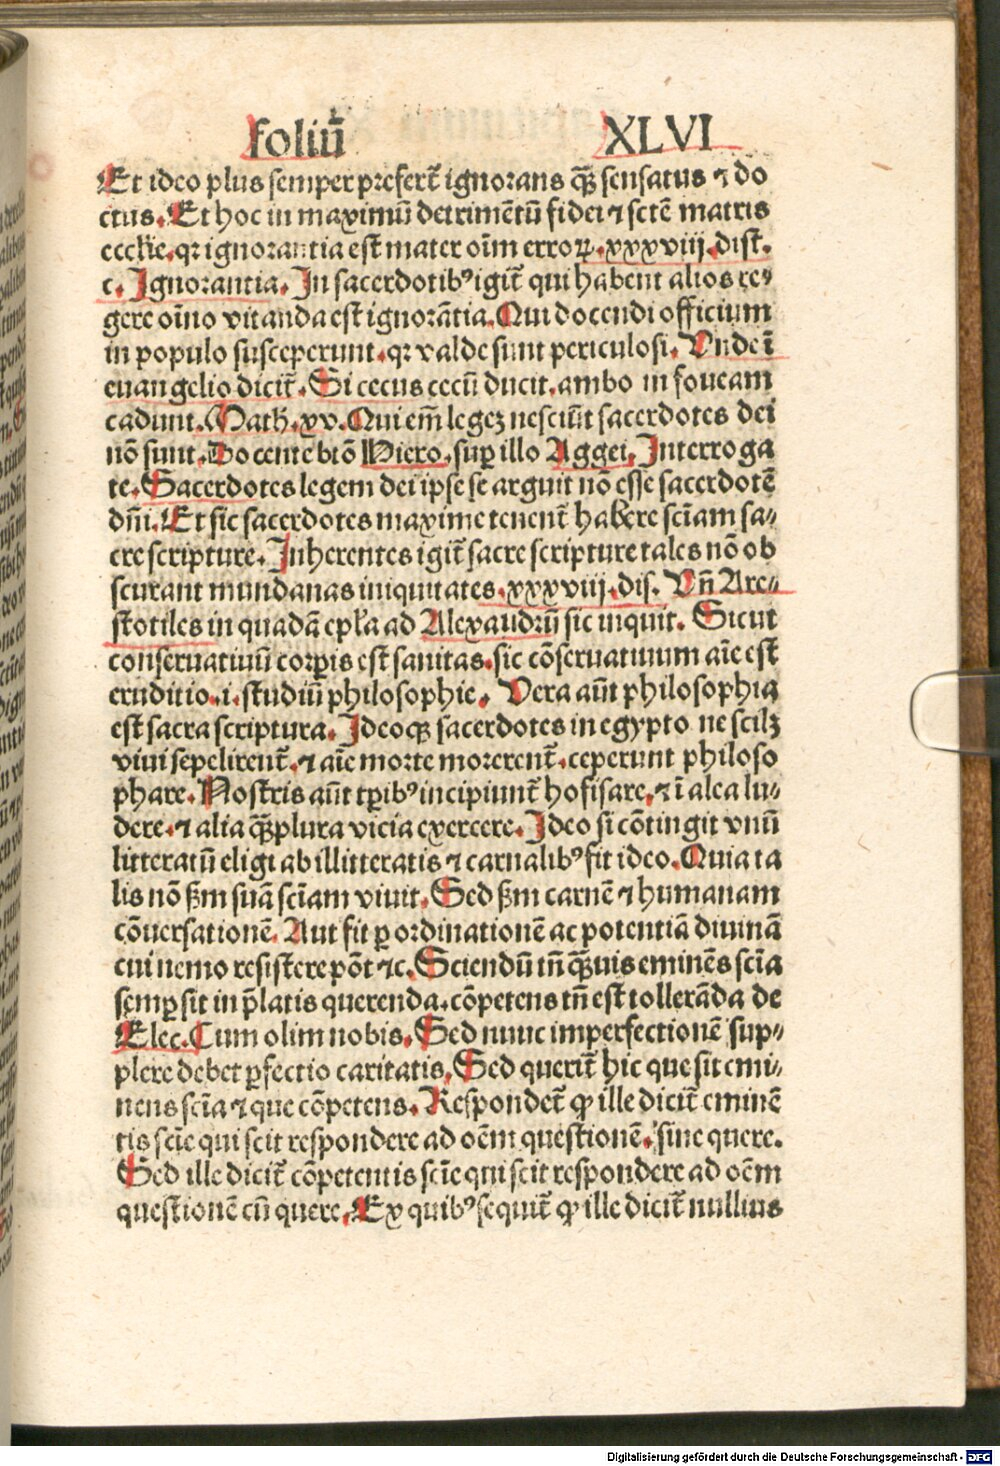 foliū XLVI
Et ideo plus semper prefert̄ ignorans qꝫ̄ sensatus ⁊ do
ctus. Et hoc in maximū detrimētū fidei ⁊ sctē matris
eccl̄ie. qꝛ ignorantia est mater oīm erroꝝ. xxxviij. dist.
c. Ignorantia. In sacerdotibꝰ igit̄ qui habent alios re⸗
gere oīno vitanda est ignorātia. Qui docendi officium
in populo susceperunt. qꝛ valde sunt periculosi. Unde ī
euangelio dicit̄. Si cecus cecū ducit. ambo in foueam
cadunt. Math. xv. Qui em̄ legeꝫ nesciūt sacerdotes dei
nō sunt. Docente btō Hiero. suꝑ illo Aggei. Interroga
te. Sacerdotes legem dei ipse se arguit nō esse sacerdotē
dn̄i. Et sic sacerdotes maxime tenent̄ habere sciam̄ sa⸗
cre scripture. Inherentes igit̄ sacre scripture tales nō ob
scurant mundanas iniquitates. xxxviij. dis. Un̄ Are⸗
stotiles in quadā epl̄a ad Alexandrū sic inquit. Sicut
conseruatiuū corꝑis est sanitas. sic cōseruatiuum aīe est
eruditio. i. studiū philosophie. Vera aūt philosophia
est sacra scriptura. Ideoqꝫ sacerdotes in egypto ne scilꝫ
viui sepelirent̄. ⁊ aīe morte morerent̄. ceperunt philoso
phare. Nostris aūt tꝑibꝰ incipiunt̄ hofisare. ⁊ ī alea lu⸗
dere. ⁊ alia qꝫ̄plura vicia exercere. Ideo si cōtingit vnū
litteratū eligi ab illitteratis ⁊ carnalibꝰ fit ideo. Quia ta
lis nō ẜm suā sciam̄ viuit. Sed ẜm carnē ⁊ humanam
cōuersationē. Aut fit ꝑ ordinationē ac potentiā diuinā
cui nemo resistere pōt ⁊c. Sciendū tn̄ qꝫ̄uis eminēs scīa
semꝑ sit in p̄latis querenda. cōpetens tn̄ est tollerāda de
Elec. Cum olim nobis. Sed nunc imperfectionē sup⸗
plere debet ꝑfectio caritatis. Sed querit̄ hic que sit emi⸗
nens scīa ⁊ que cōpetens. Respondet̄ ꝙ ille dicit̄ eminē
tis scīe qui scit respondere ad oēm questionē. sine quere.
Sed ille dicit̄ cōpetentis scīe qui scit respondere ad oēm
questionē cū quere. Ex quibꝰ sequit̄ ꝙ ille dicit̄ nullius
Digitalisierung gefördert durch die Deutsche Forschungsgemeinschaft - DFG